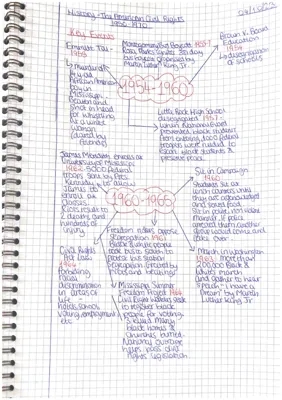 History - The American Civil Rights
1950 - 1970
Key Events
Emmett Till -
1955
Montgomery Bus Boycott
Rosa Parks
bus boycott organised by
Martin Luther King Jr
Brown V. Board
Education
1954
of schools
murder of
14 yr old
African American
boy in
Mississippi
Beaten and
shot in head
for whistling
at a white
woman
(dared by
friends)
1954-1960
Little Rock High School
desegregated 1957 -
prevented black students
from entering. 1000 federal
troops were needed to
escort black students &
preserve peace.
James Meredith enrolled at
University of Mississippi
1962 - 5000 federal
troops sent by Pres
Kennedy to allow
James to
enroll for
classes
Riots result to
2 deaths and
hundreds of
injury
1960-1965
Sit in Campaign
1960
Students sit at
lunch counters until
they are acknowledged
and served food.
take over
Freedom riders oppose
Segregation 1961
Black & white people
took bus south to
protest bus station
Segregation. Greeted by
riots and beatings
March on Washington
1963 - more than
200,000 Black &
White march
and gather to hear
speech - "I have a
Dream" by Martin
Luther King Jr
Civil Rights
Act Pass
1964
banishing
racial
discrimination
in areas of
life -
hotels, school
voting, employment
etc
Mississippi Summer
Freedom Project 1964
Civil Rights Workers seek
to register black
people for voting.
3 killed, many
black homes &
Churches burned.
National outrage
helps pass civil
rights legislation